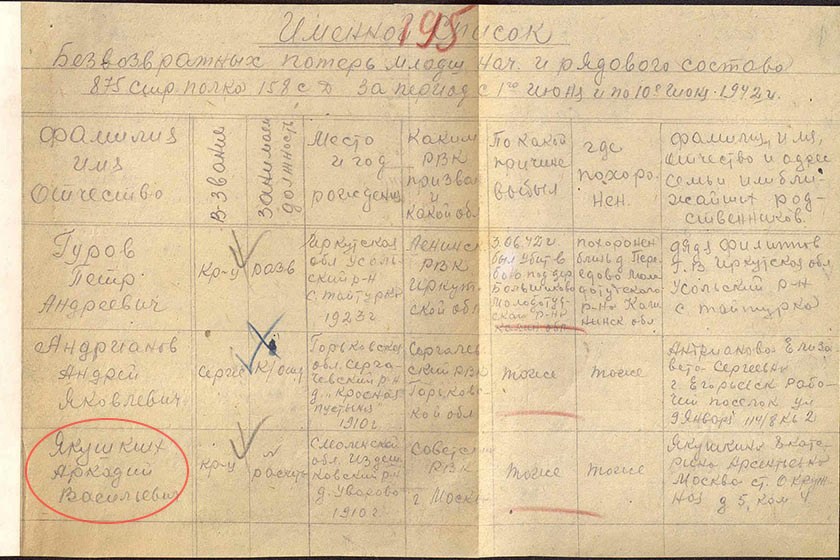 Именной список
195
Безвозвратных потерь младш. нач. и рядового состава
875 стр полка 158 с Д за период с 1го июня и по 10е июня 1942 г.
Фамилия
имя
Отчество
В-звание
Занимаем
должность
Место
и год
рождения
Каким
РВК
призван
и
какой обл
По какой
причине
выбыл
где
похоро-
нен.
Фамилия, имя,
Отчество и адрес
семьи или бли-
жайших род-
ственников.
Гуров
Петр
Андреевич
Кр-ц
разв
Иркутская
обл Усоль-
ский р-н
с. Тайтурка
1923 г
Ленинск
РВК
Иркут-
ской обл
3.06.42 г.
был убит в
бою под дер
Большиково
Молодотуд-
ского р-на
похоронен
близь д Пере-
едово Моло-
дотутского
р-на Кали-
нинск обл
дядя Филиппов
Г. В Иркутская обл
Усольский р-н
с Тайтурка
Андрианов
Андрей
Яковлевич
Сержт
К/отд
Горьковская
обл. Серга-
чевский р н
д. "Красная
пустынь"
1910 г.
Сергаче-
ский РВК
Горьков-
кой обл
тоже
тоже
Антрианова Елиза
вета Сергеевна
г. Егорьевск Рабо-
чий поселок ул
9 Января 114/8 кв 2
Якушкин
Аркадий
Васильевич
кр-ц
Смоленской
обл. Издеш
ковский р-н
д. Уварово
1910 г.
Советск
РВК
г Москв
тоже
тоже
Якушкина Екате-
рина Арсентьевна
Москва ст. Окруж-
ная д 5, ком 4